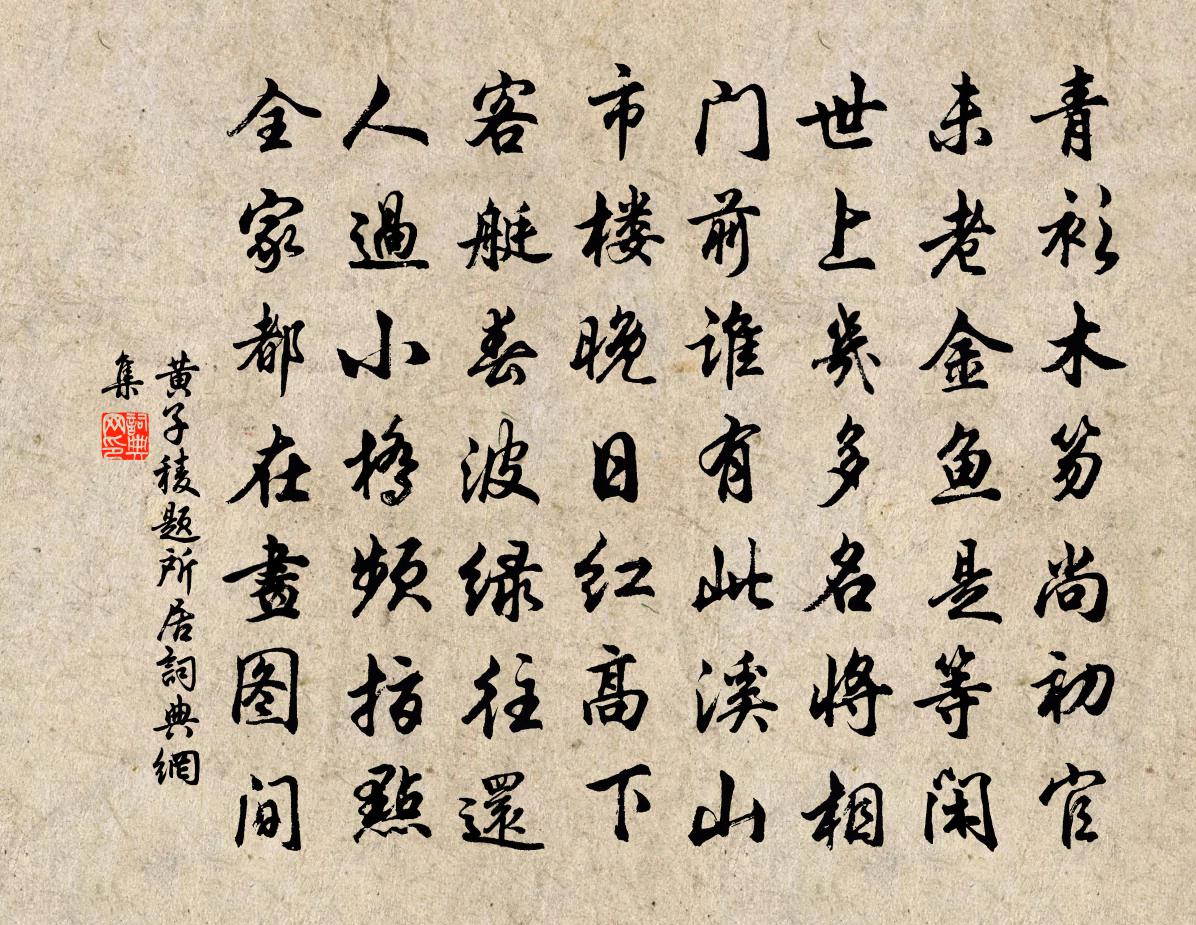 青衫木笏尚初官
未老金鱼是等闲
世上幾多名将相
门前谁有此溪山
市楼晚日红高下
客艇春波绿往還
人過小橋频指點
全家都在畫图间
黄子稜题所居詞典網
集
詞典网印